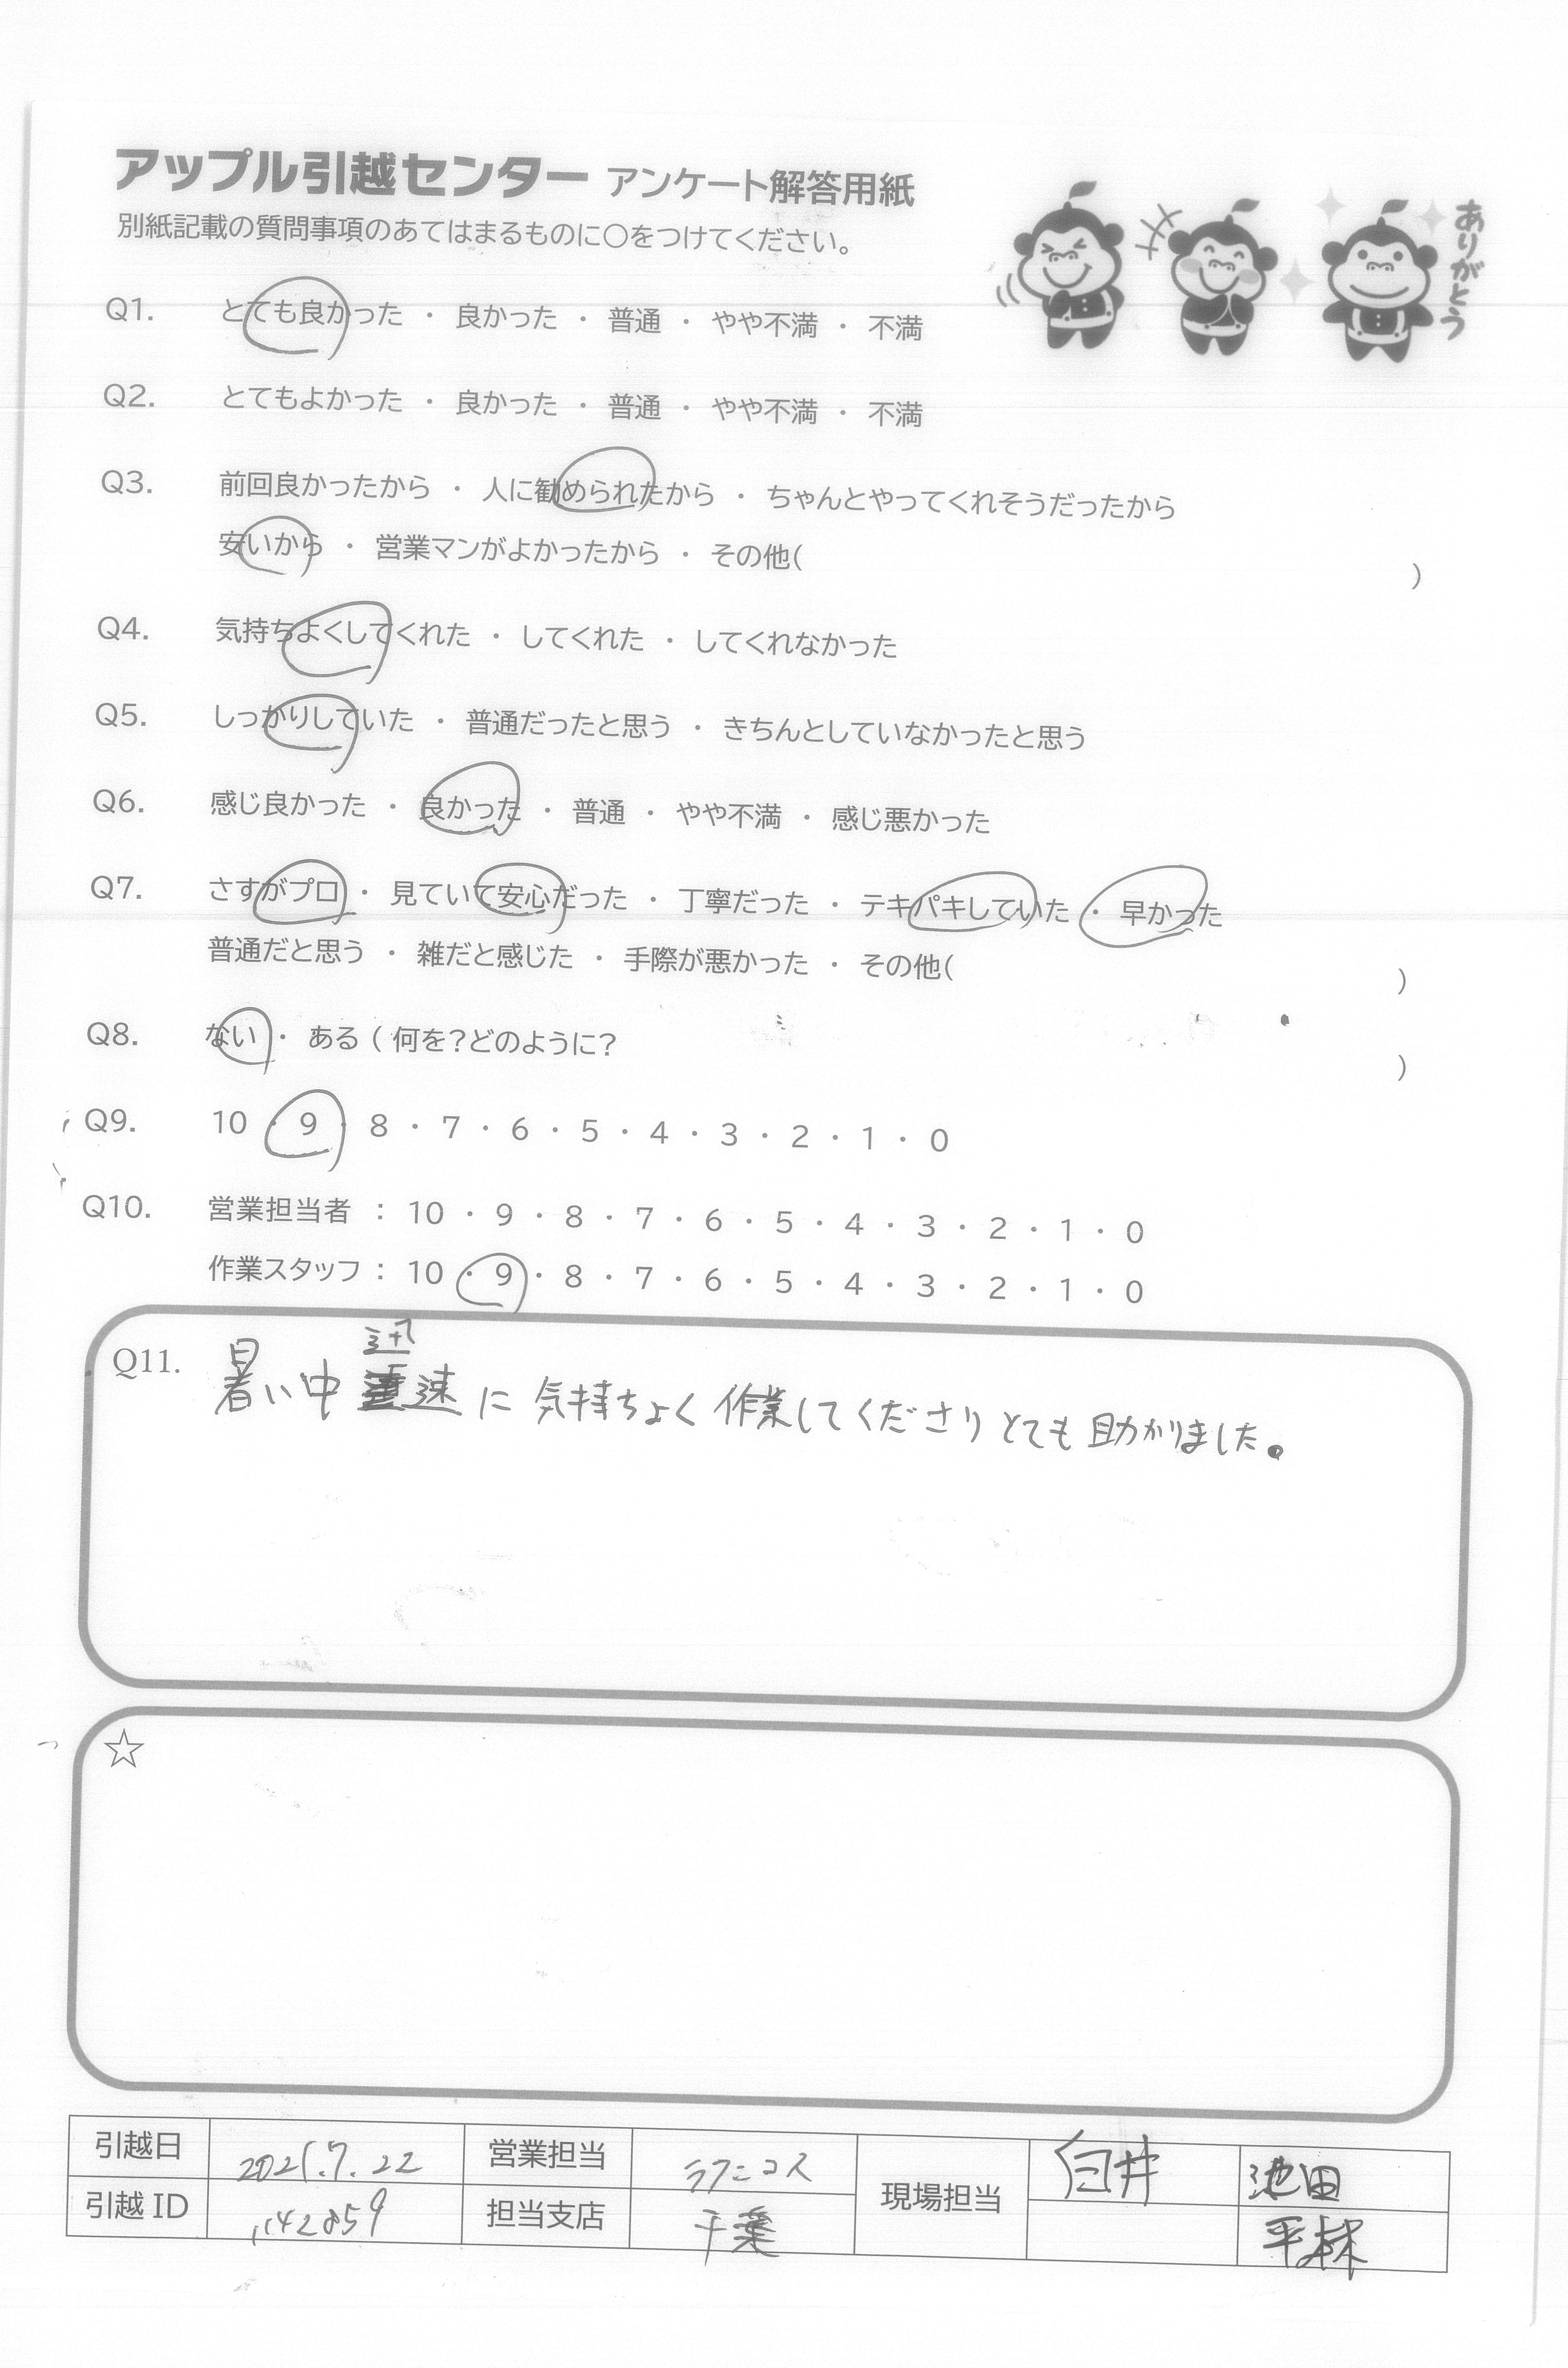 アップル引越センター アンケート解答用紙
別紙記載の質問事項のあてはまるものに○をつけてください。
ありがとう
Q1. とても良かった ・ 良かった ・ 普通 ・ やや不満 ・ 不満
Q2. とてもよかった ・ 良かった ・ 普通 ・ やや不満 ・ 不満
Q3. 前回良かったから ・ 人に勧められたから ・ ちゃんとやってくれそうだったから
安いから ・ 営業マンがよかったから ・ その他( )
Q4. 気持ちよくしてくれた ・ してくれた ・ してくれなかった
Q5. しっかりしていた ・ 普通だったと思う ・ きちんとしていなかったと思う
Q6. 感じ良かった ・ 良かった ・ 普通 ・ やや不満 ・ 感じ悪かった
Q7. さすがプロ ・ 見ていて安心だった ・ 丁寧だった ・ テキパキしていた ・ 早かった
普通だと思う ・ 雑だと感じた ・ 手際が悪かった ・ その他( )
Q8. ない ・ ある ( 何を?どのように? )
Q9. 10 ・ 9 ・ 8 ・ 7 ・ 6 ・ 5 ・ 4 ・ 3 ・ 2 ・ 1 ・ 0
Q10. 営業担当者 : 10 ・ 9 ・ 8 ・ 7 ・ 6 ・ 5 ・ 4 ・ 3 ・ 2 ・ 1 ・ 0
作業スタッフ : 10 ・ 9 ・ 8 ・ 7 ・ 6 ・ 5 ・ 4 ・ 3 ・ 2 ・ 1 ・ 0
Q11. 暑い中 迅速に 気持ちよく 作業してくださり とても 助かりました。
☆
引越日 営業担当 現場担当 白井 池田
引越ID 担当支店 千葉 平林